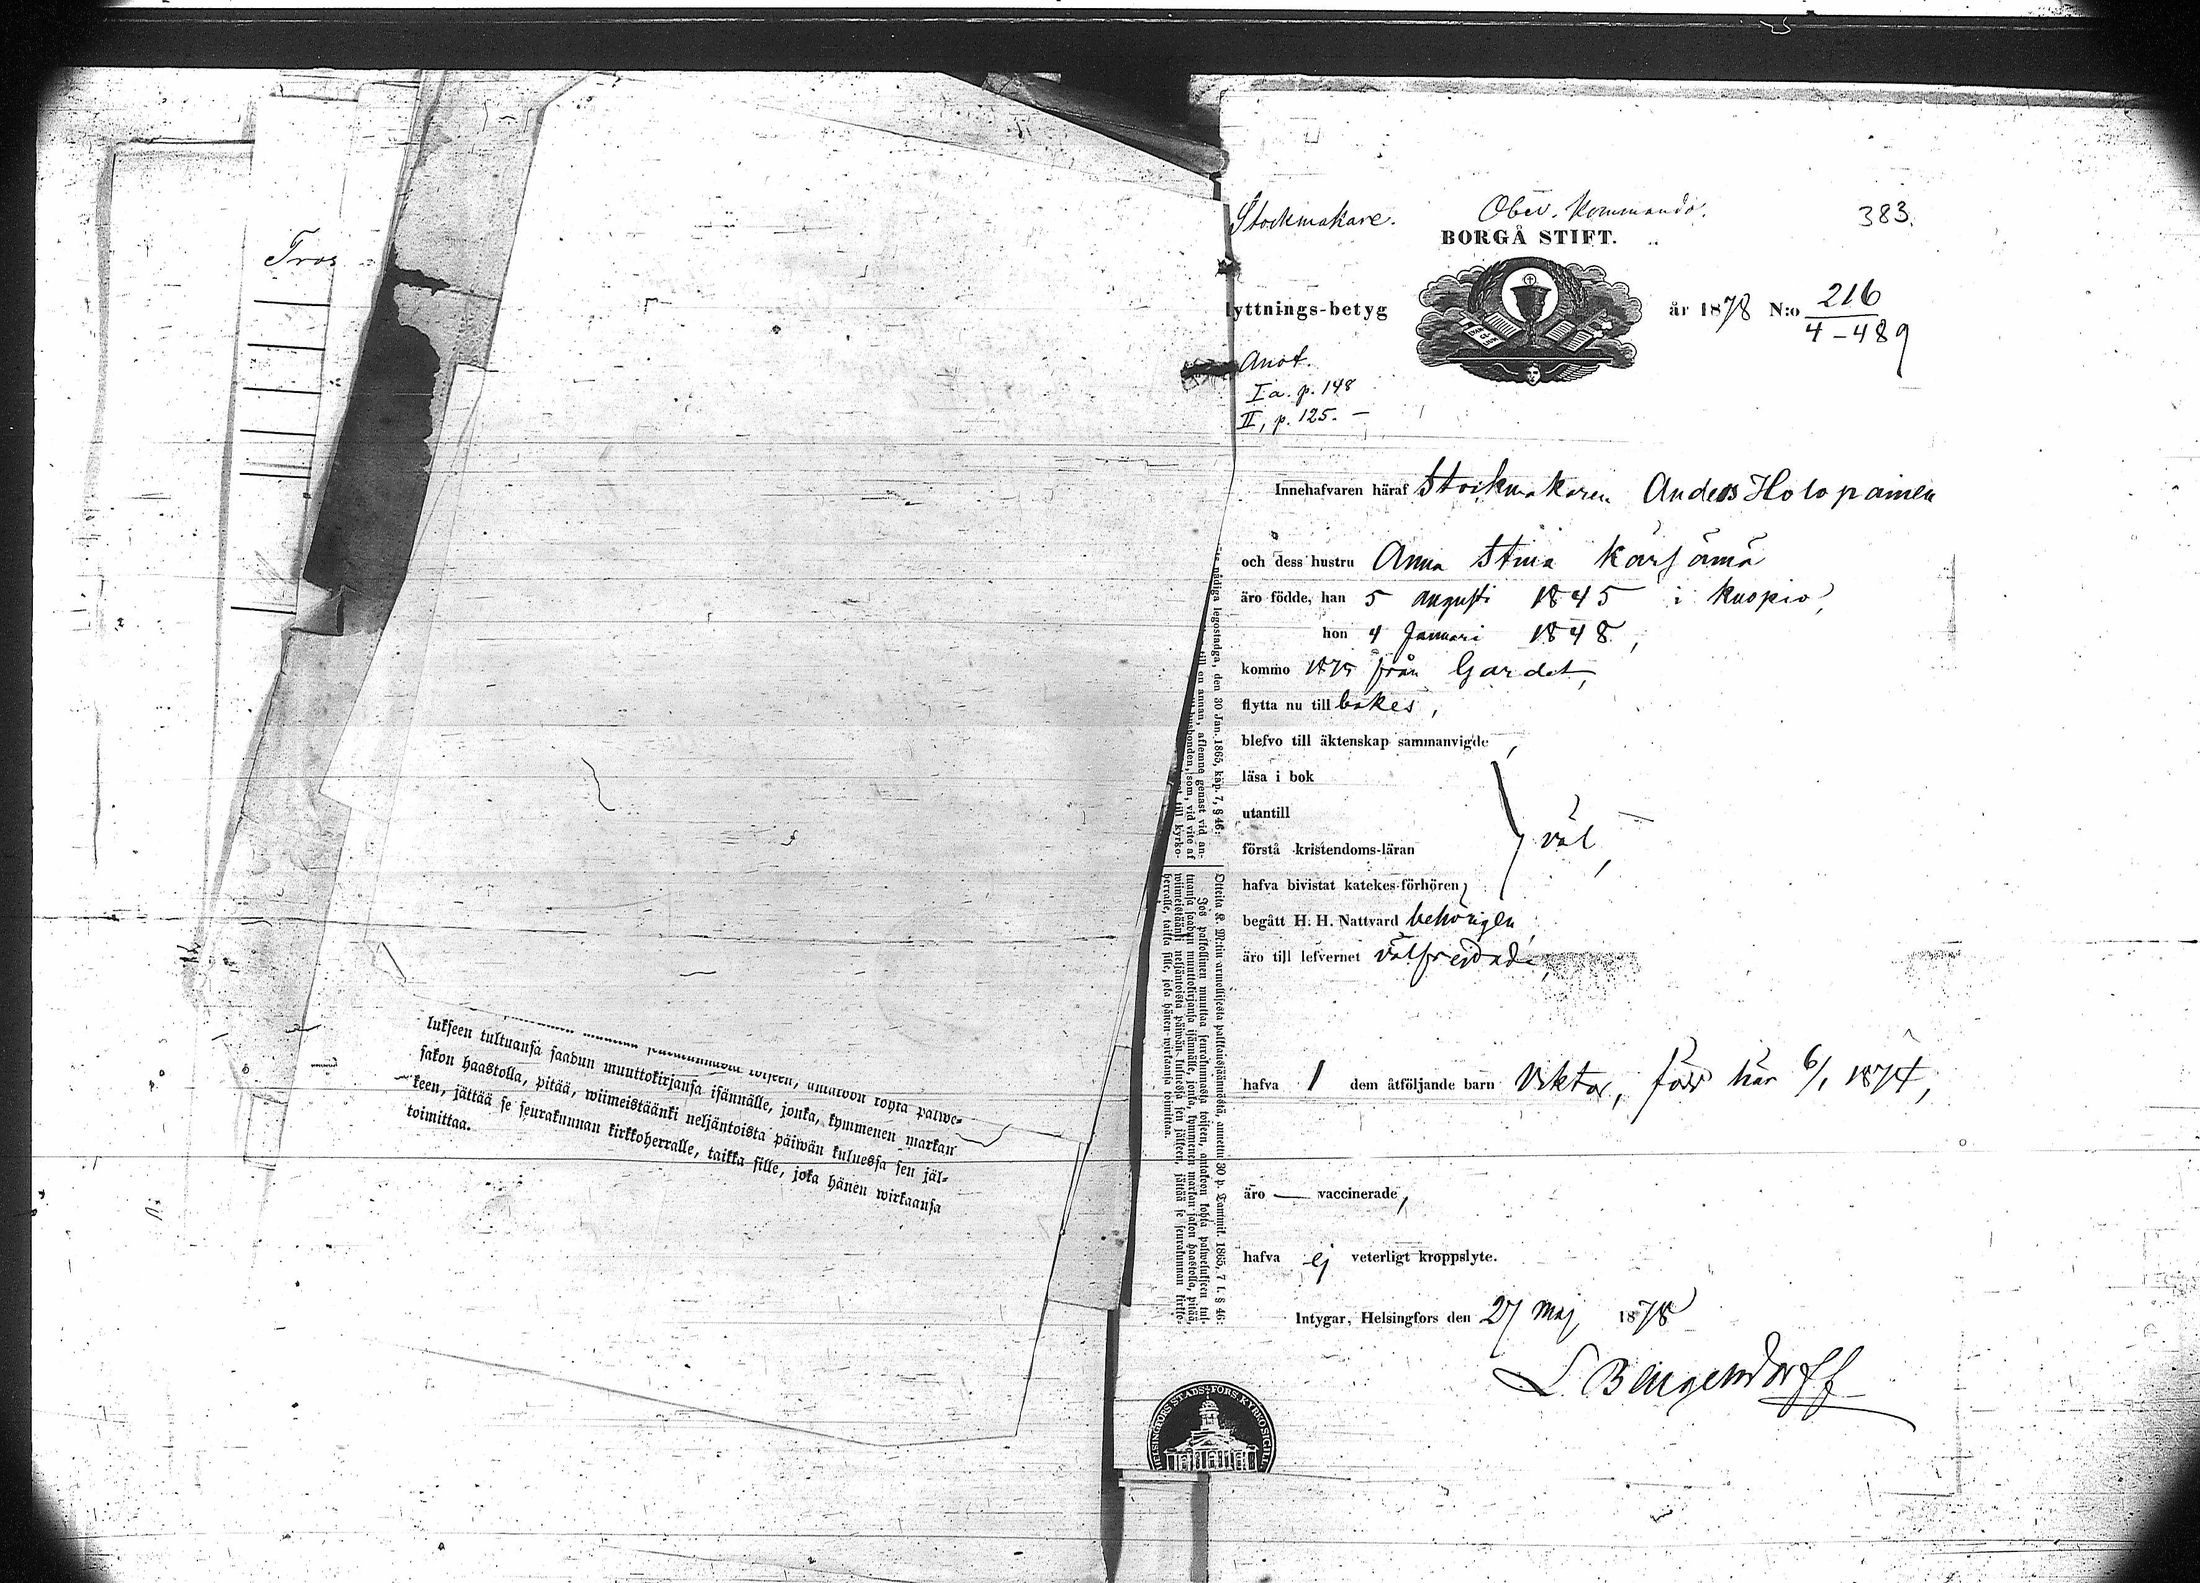 Tros
lukseen tultuansa saadun muuttokirjansa isännälle, jonka, kymmenen markan
sakon haastolla, pitää, wiimeistäänki neljäntoista päiwän kuluessa sen jäl-
keen, jättää se seurakunnan kirkkoherralle, taikka sille, joka hänen wirkaansa
toimittaa.
nådiga legostadga, den 30 Jan. 1865, kap. 7, § 46:
till en annan, aflemne genast vid an-
husbonden, som, vid vite af
till kyrko-
Otteita K. M:tin armollisesta palkkaussäännöstä, annettu 30 p. Tammik. 1865, 7 l. § 46:
Jos palkollinen muuttaa seurakunnasta toiseen, antakoon kohta palwelukseen tul-
tuansa saadun muuttokirjansa isännälle, jonka, kymmenen markan sakon haastolla, pitää,
wiimeistäänki neljäntoista päiwän kuluessa sen jälkeen, jättää se seurakunnan kirkko-
herralle, taikka sille, joka hänen wirkaansa toimittaa.
Stockmakare. Ober. Kommando. 383.
BORGÅ STIFT.
lyttnings-betyg år 1878 N:o 216
4-489
Anot.
I a. p. 148
II, p. 125. –
Innehafvaren häraf Stockmakaren Anders Holopainen
och dess hustru Anna Stina Kärsämä
äro födde, han 5 augusti 1845 i Kuopio,
hon 4 Januari 1848,
kommo 1875 från Gardet,
flytta nu till bakes,
blefvo till äktenskap sammanvigde,
läsa i bok
utantill
förstå kristendoms-läran väl,
hafva bivistat katekes-förhören,
begått H. H. Nattvard behörigen,
äro till lefvernet välfrejdade,
hafva 1 dem åtföljande barn Viktor, född här 6/1 1874,
äro — vaccinerade,
hafva ej veterligt kroppslyte.
Intygar, Helsingfors den 27 Maj 1878
L Bengelsdorff
HELSINGFORS STADS-FÖRS. KYRKO SIGILL